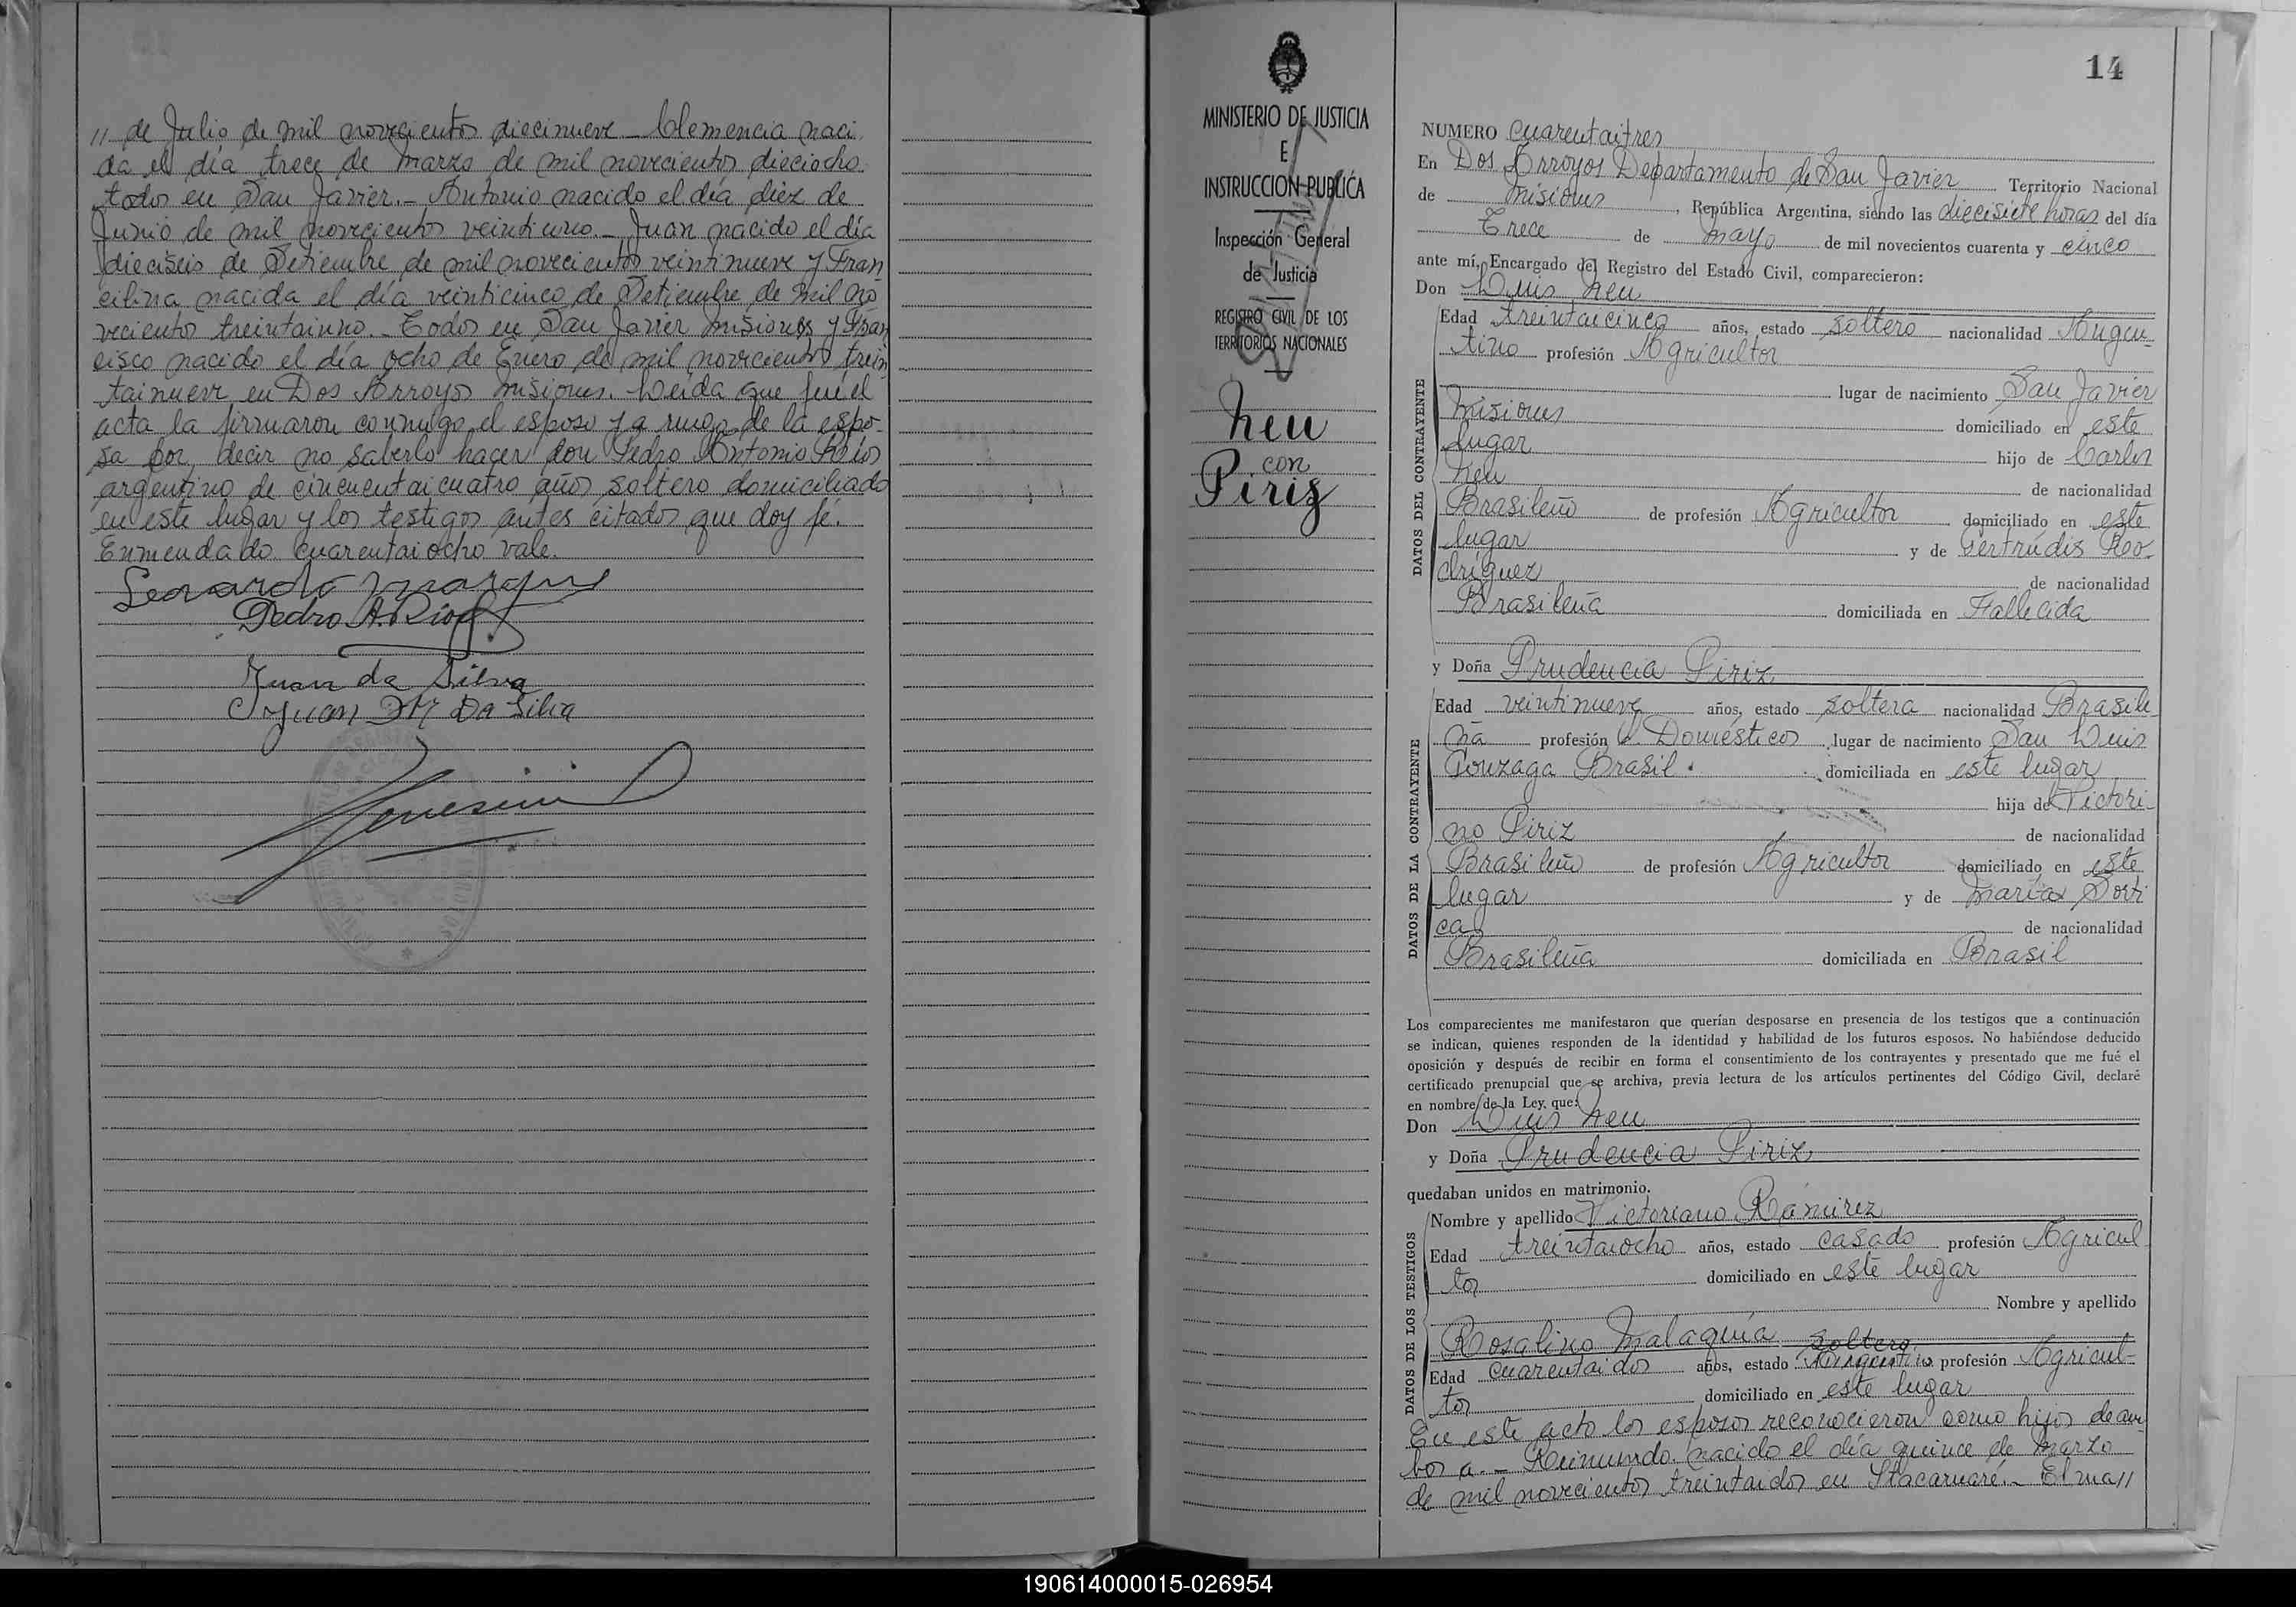 // de Julio de mil novecientos diecinueve _ Clemencia naci
da el día trece de Marzo de mil novecientos dieciocho.
todos en San Javier._ Antonio nacido el día diez de
Junio de mil novecientos veintiuno._ Juan nacido el día
dieciseis de Setiembre de mil novecientos veintinueve y Fran
cilina nacida el día veinticinco de Setiembre de mil no
vecientos treintaiuno._ Todos en San Javier Misiones y Fran
cisco nacido el día ocho de Enero de mil novecientos trein
tainueve en Dos Arroyos Misiones. Leida que fué el
acta la firmaron conmigo el esposo y a ruego de la espo-
sa por decir no saberlo hacer don Pedro Antonio Rios
argentino de cincuentaicuatro años soltero domiciliado
en este lugar y los testigos antes citados que doy fé.
Enmendado cuarentaiocho vale.
Pedro A. Rios
Juan da Silva
Juan Da Silva
MINISTERIO DE JUSTICIA
E
INSTRUCCION PUBLICA
Inspección General
de Justicia
REGISTRO CIVIL DE LOS
TERRITORIOS NACIONALES
Neu
con
Piriz
14
NUMERO Cuarentaitres
En Dos Arroyos Departamento de San Javier Territorio Nacional
de Misiones, República Argentina, siendo las diecisiete horas del día
Trece de Mayo de mil novecientos cuarenta y cinco
ante mí, Encargado del Registro del Estado Civil, comparecieron:
Don Luis Neu
DATOS DEL CONTRAYENTE
Edad treintaicinco años, estado soltero nacionalidad Argen-
tino profesión Agricultor
lugar de nacimiento San Javier
Misiones domiciliado en este
lugar hijo de Carlos
Neu de nacionalidad
Brasileño de profesión Agricultor domiciliado en este
lugar y de Gertrudis Ro-
driguez de nacionalidad
Brasileña domiciliada en Fallecida
y Doña Prudencia Piriz
DATOS DE LA CONTRAYENTE
Edad veintinueve años, estado soltera nacionalidad Brasile
ña profesión Q. Domésticos lugar de nacimiento San Luis
Gonzaga Brasil. domiciliada en este lugar
hija de Victori
no Piriz de nacionalidad
Brasileño de profesión Agricultor domiciliado en este
lugar y de Maria
de nacionalidad
Brasileña domiciliada en Brasil
Los comparecientes me manifestaron que querían desposarse en presencia de los testigos que a continuación
se indican, quienes responden de la identidad y habilidad de los futuros esposos. No habiéndose deducido
oposición y después de recibir en forma el consentimiento de los contrayentes y presentado que me fué el
certificado prenupcial que se archiva, previa lectura de los artículos pertinentes del Código Civil, declaré
en nombre de la Ley, que:
Don Luis Neu
y Doña Prudencia Piriz
quedaban unidos en matrimonio.
DATOS DE LOS TESTIGOS
Nombre y apellido Victoriano Ramirez
Edad treintaiocho años, estado casado profesión Agricul
tor domiciliado en este lugar
Nombre y apellido
Rosalino Malaquia soltero
Edad cuarentaidos años, estado Argentino profesión Agricul-
tor domiciliado en este lugar
En este acto los esposos reconocieron como hijos de am
bos a._ Reimundo nacido el día quince de Marzo
de mil novecientos treintaidos en Itacaruaré._ Elma//
190614000015-026954